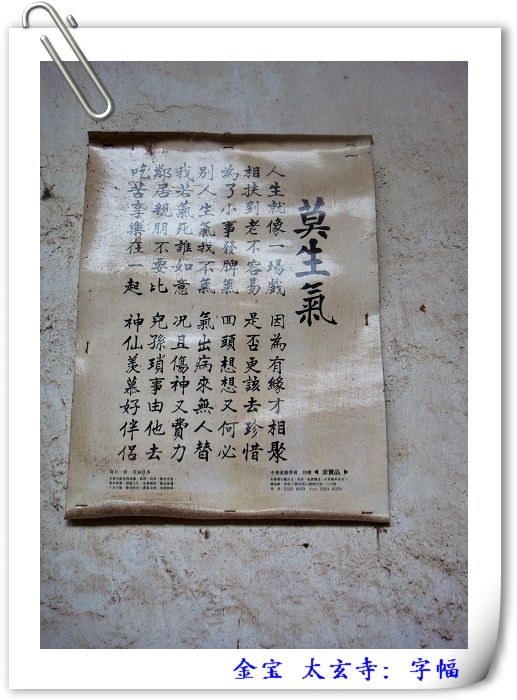 莫生氣
人生就像一場戲 因為有緣才相聚
相扶到老不容易 是否更該去珍惜
為了小事發脾氣 囬頭想想又何必
別人生氣我不氣 氣出病來無人替
我若氣死誰如意 況且傷神又費力
鄰居親朋不要比 兒孫瑣事由他去
吃苦享樂在一起 神仙羨慕好伴侶
◀ 非賣品 ▶
金宝 太玄寺: 字幅